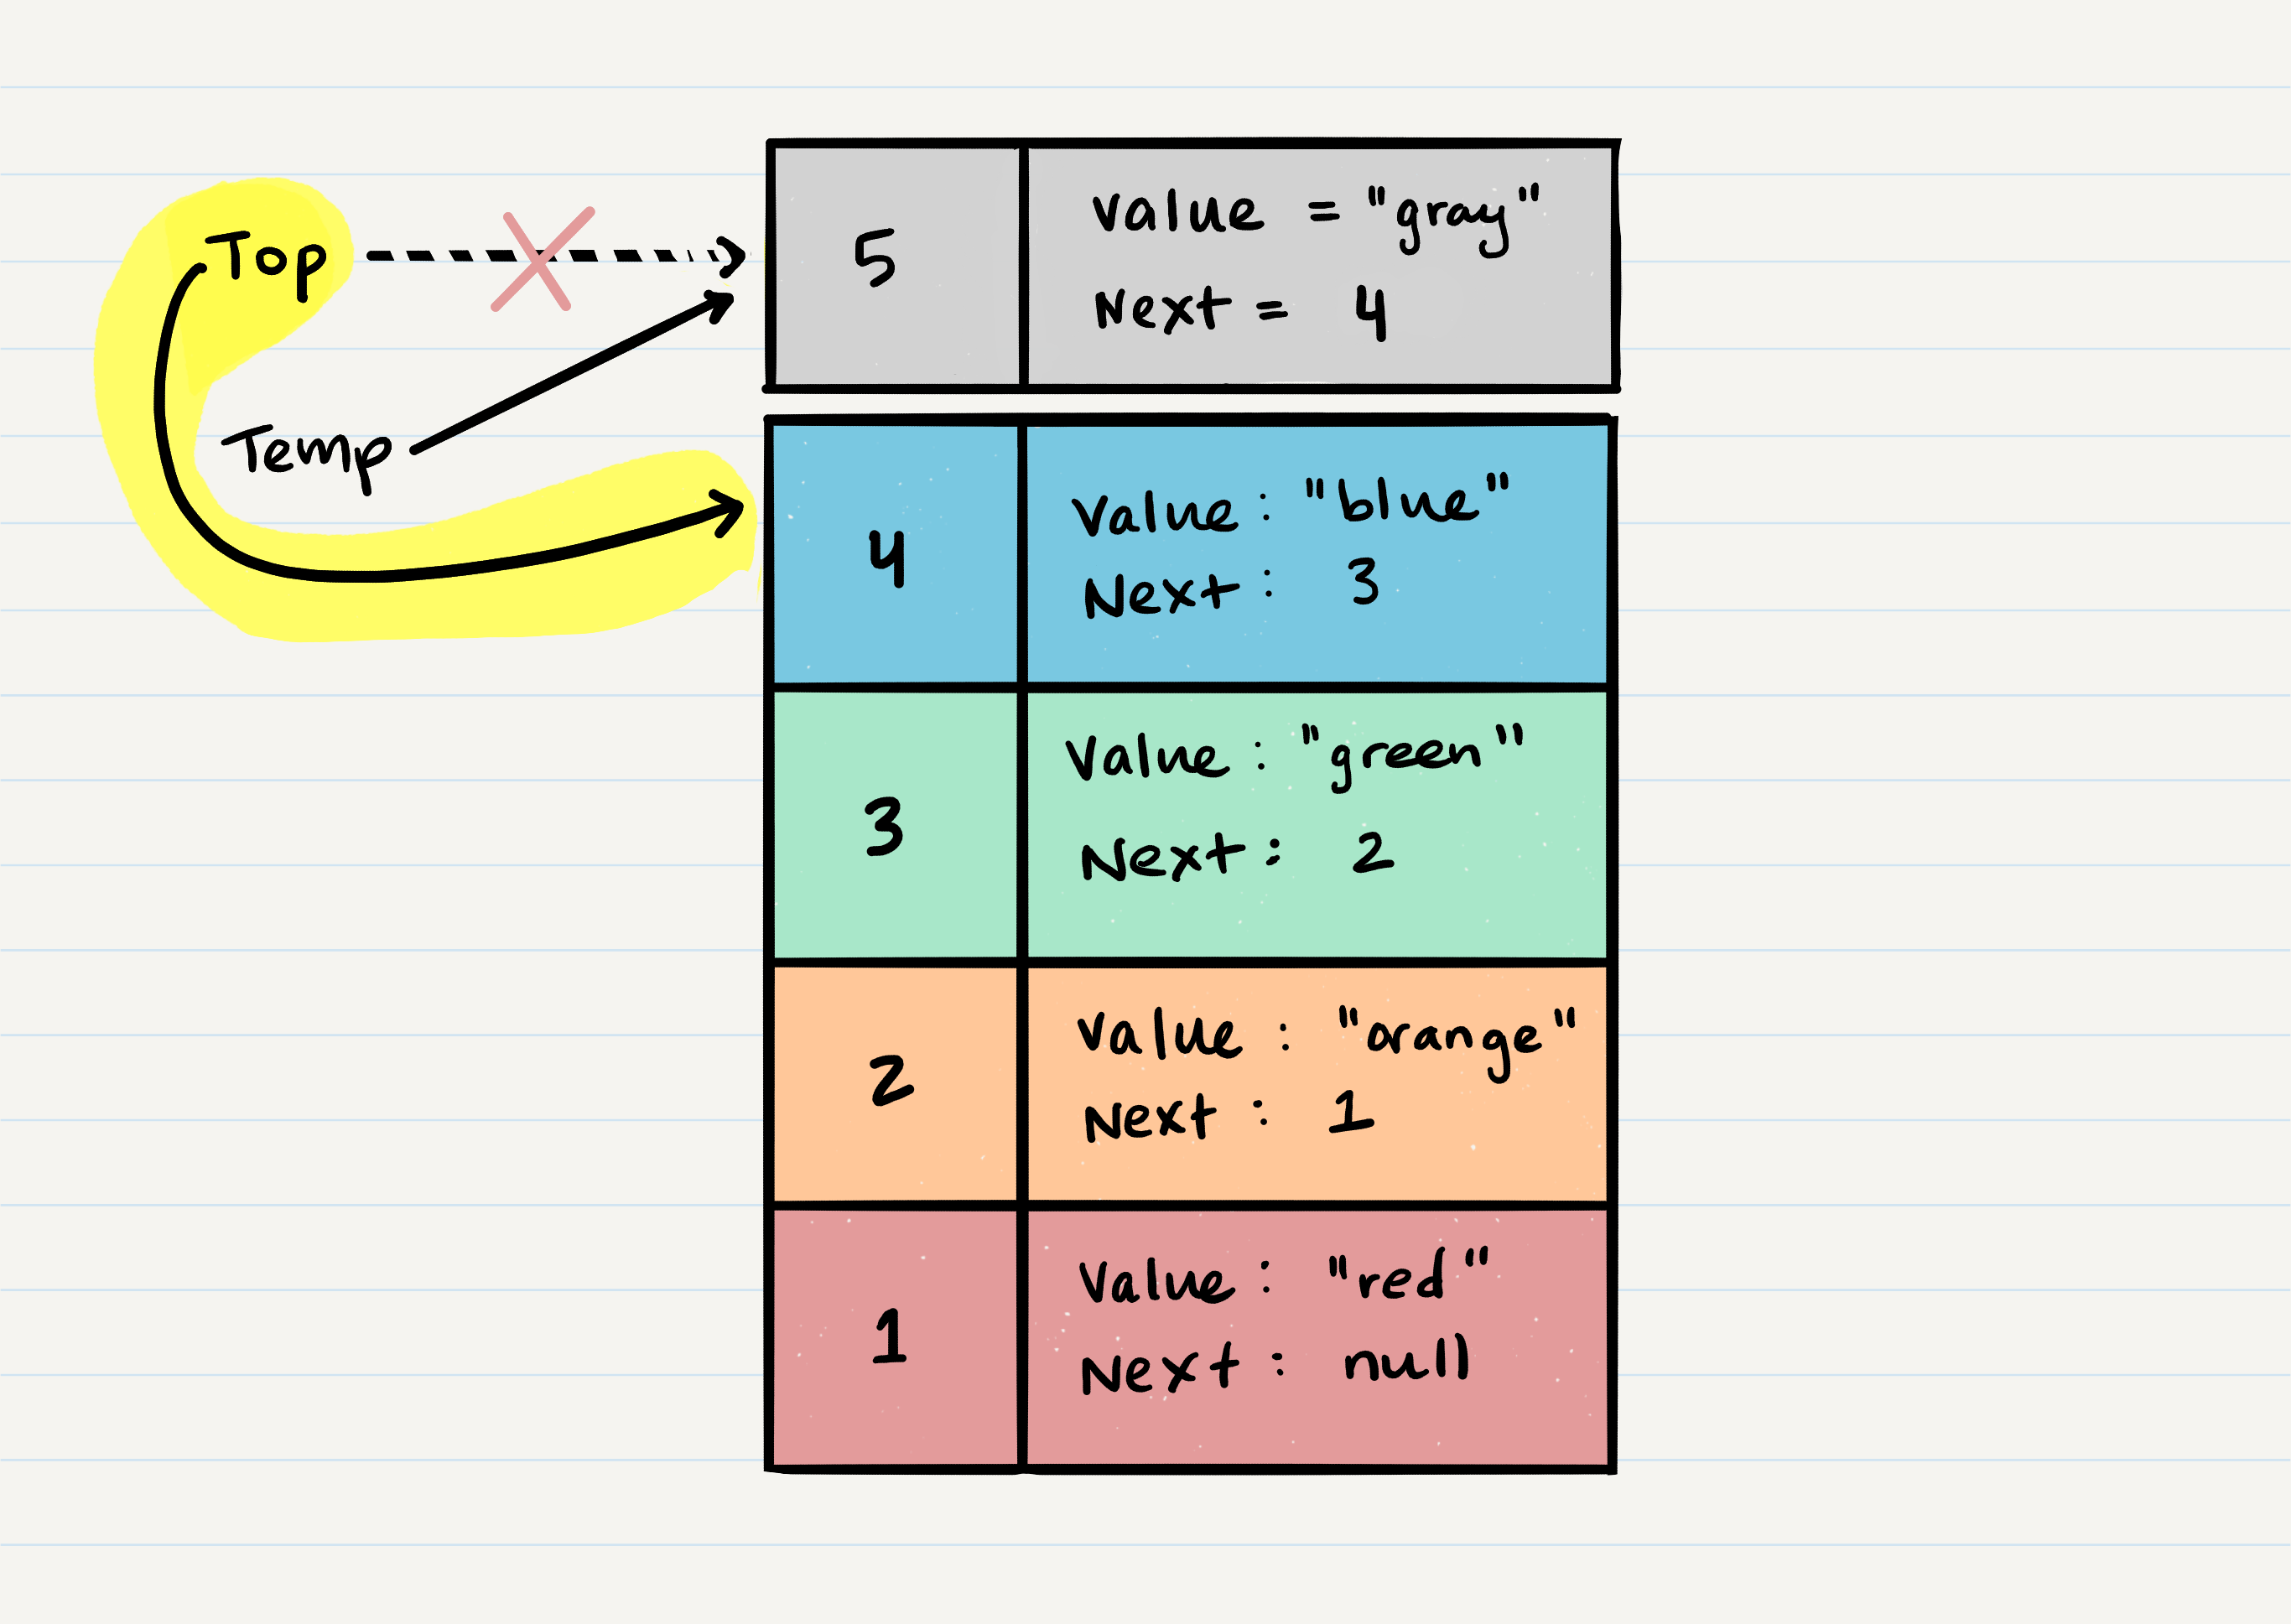 Top
Temp
5
Value = "gray"
Next = 4
4
Value : "blue"
Next : 3
3
Value : "green"
Next : 2
2
Value : "orange"
Next : 1
1
Value : "red"
Next : null